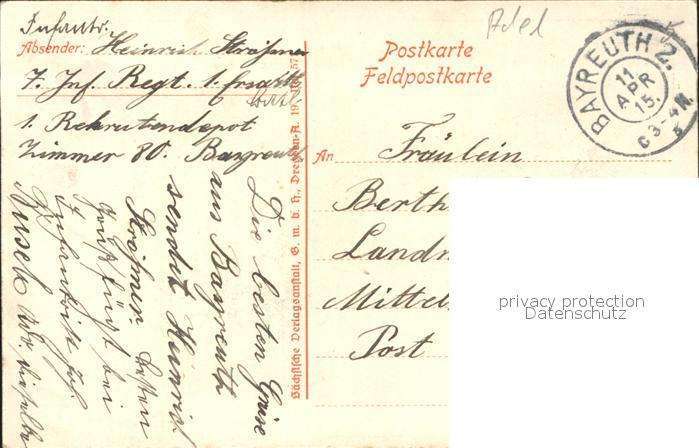 Infantr.
Absender: Heinrich Straßner
7. Inf. Regt. 1. Ersatz
Batl.
1. Rekrutendepot
Zimmer 80. Bayreuth
Die besten Grüße
aus Bayreuth
sendet Heinrich
Straßner. Besten
Gruß fügt bei
Infanterist
Sächsische Verlagsanstalt, G. m. b. H., Dresden-A. 19
Adel
Postkarte
Feldpostkarte
BAYREUTH 2.
11
APR
15.
3-4 N
An
Fräulein
Berth
Landr
Mittel
Post
privacy protection
Datenschutz